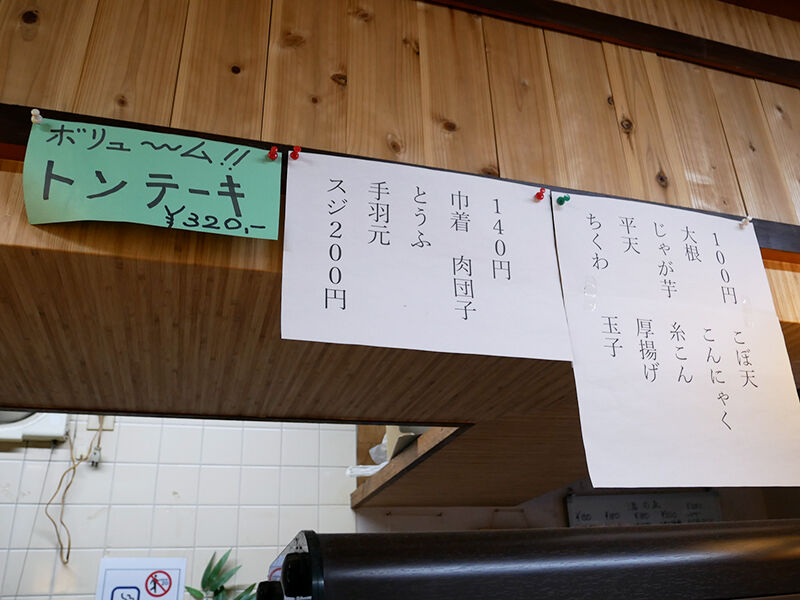 100円 こぼ天
大根 こんにゃく
じゃが芋 糸こん
平天 厚揚げ
ちくわ 玉子
140円
巾着 肉団子
とうふ
手羽元
スジ200円
ボリュ〜ム!!
トンテーキ
¥320,-